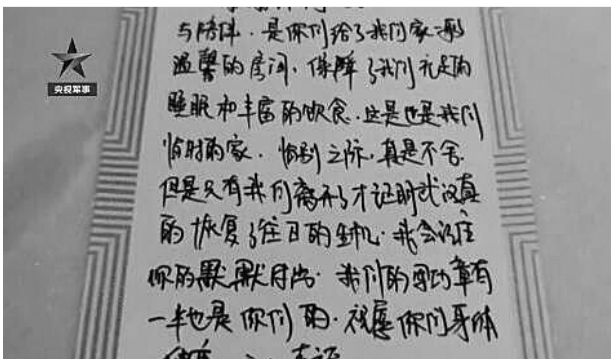 与陪伴。是你们给了我们家一般
温馨的房间,保障了我们充足的
睡眠和丰富的饮食。这里也是我们
临时的家。临别之际,真是不舍.
但是只有我们离开了才证明武汉真
的恢复了往日的生机。我会记住
你的默默付出。我们的军功章有
一半也是你们的。祝愿你们身体
央视军事